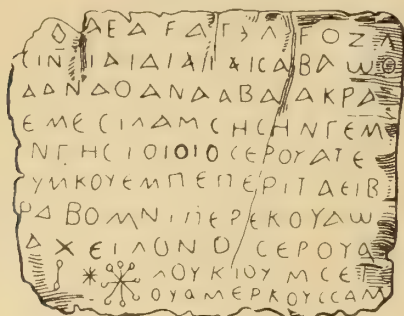 ΑΕΑϜΑΓϡΛϜΟΖΛ
ϹΙΝΙΑΙΔΙΑΙΑΙϹΑΒΑω
ΔΑΝΔΟΑΝΔΑΑΒΑΔΑΚΡΔ
ΕΜΕϹΙΛΑΜϹΗϹΗΝΓΕΜ
ΝΓΗϹΙΟΙΟΙΟϹΕΡΟΥΑΤΕ
ΥΜΚΟΥΕΜΠΕΠΕΡΙΤΔΕΙΒ
ΔΒΟΜΝΙΠΕΡΕΚΟΥΔω
ΔΧΕΙΛΟΝΟϹΕΡΟΥΑ
ΛΟΥΚΙΟΥΜϹΕΤ
ΟΥΑΜΕΡΚΟΥϹϹΑΜ